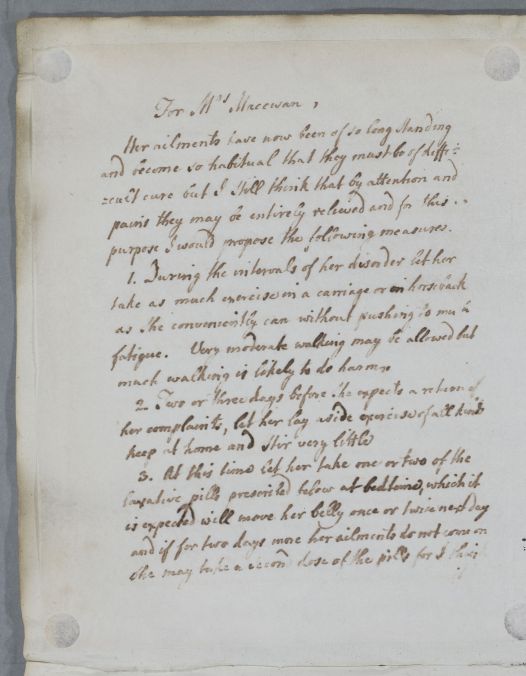 For Mrs Macewan,
Her ailments have now been of so long standing
and become so habitual that they must be of diffi=
=cult cure but I still think that by attention and
pains they may be entirely relieved and for this
purpose I would propose the following measures.
1. During the intervals of her disorder let her
take as much exercise in a carriage or on horseback
as she conveniently can without pushing to much
fatigue. Very moderate walking may be allowed but
much walking is likely to do harm.
2 Two or three days before she expects a return of
her complaints, let her lay aside exercise of all kinds
keep at home and stir very little
3. At this time let her take one or two of the
laxative pills prescribed below at bedtime, which it
is expected will move her belly once or twice next day
and if for two days more her ailments do not come on
she may take a second dose of the pills for I think